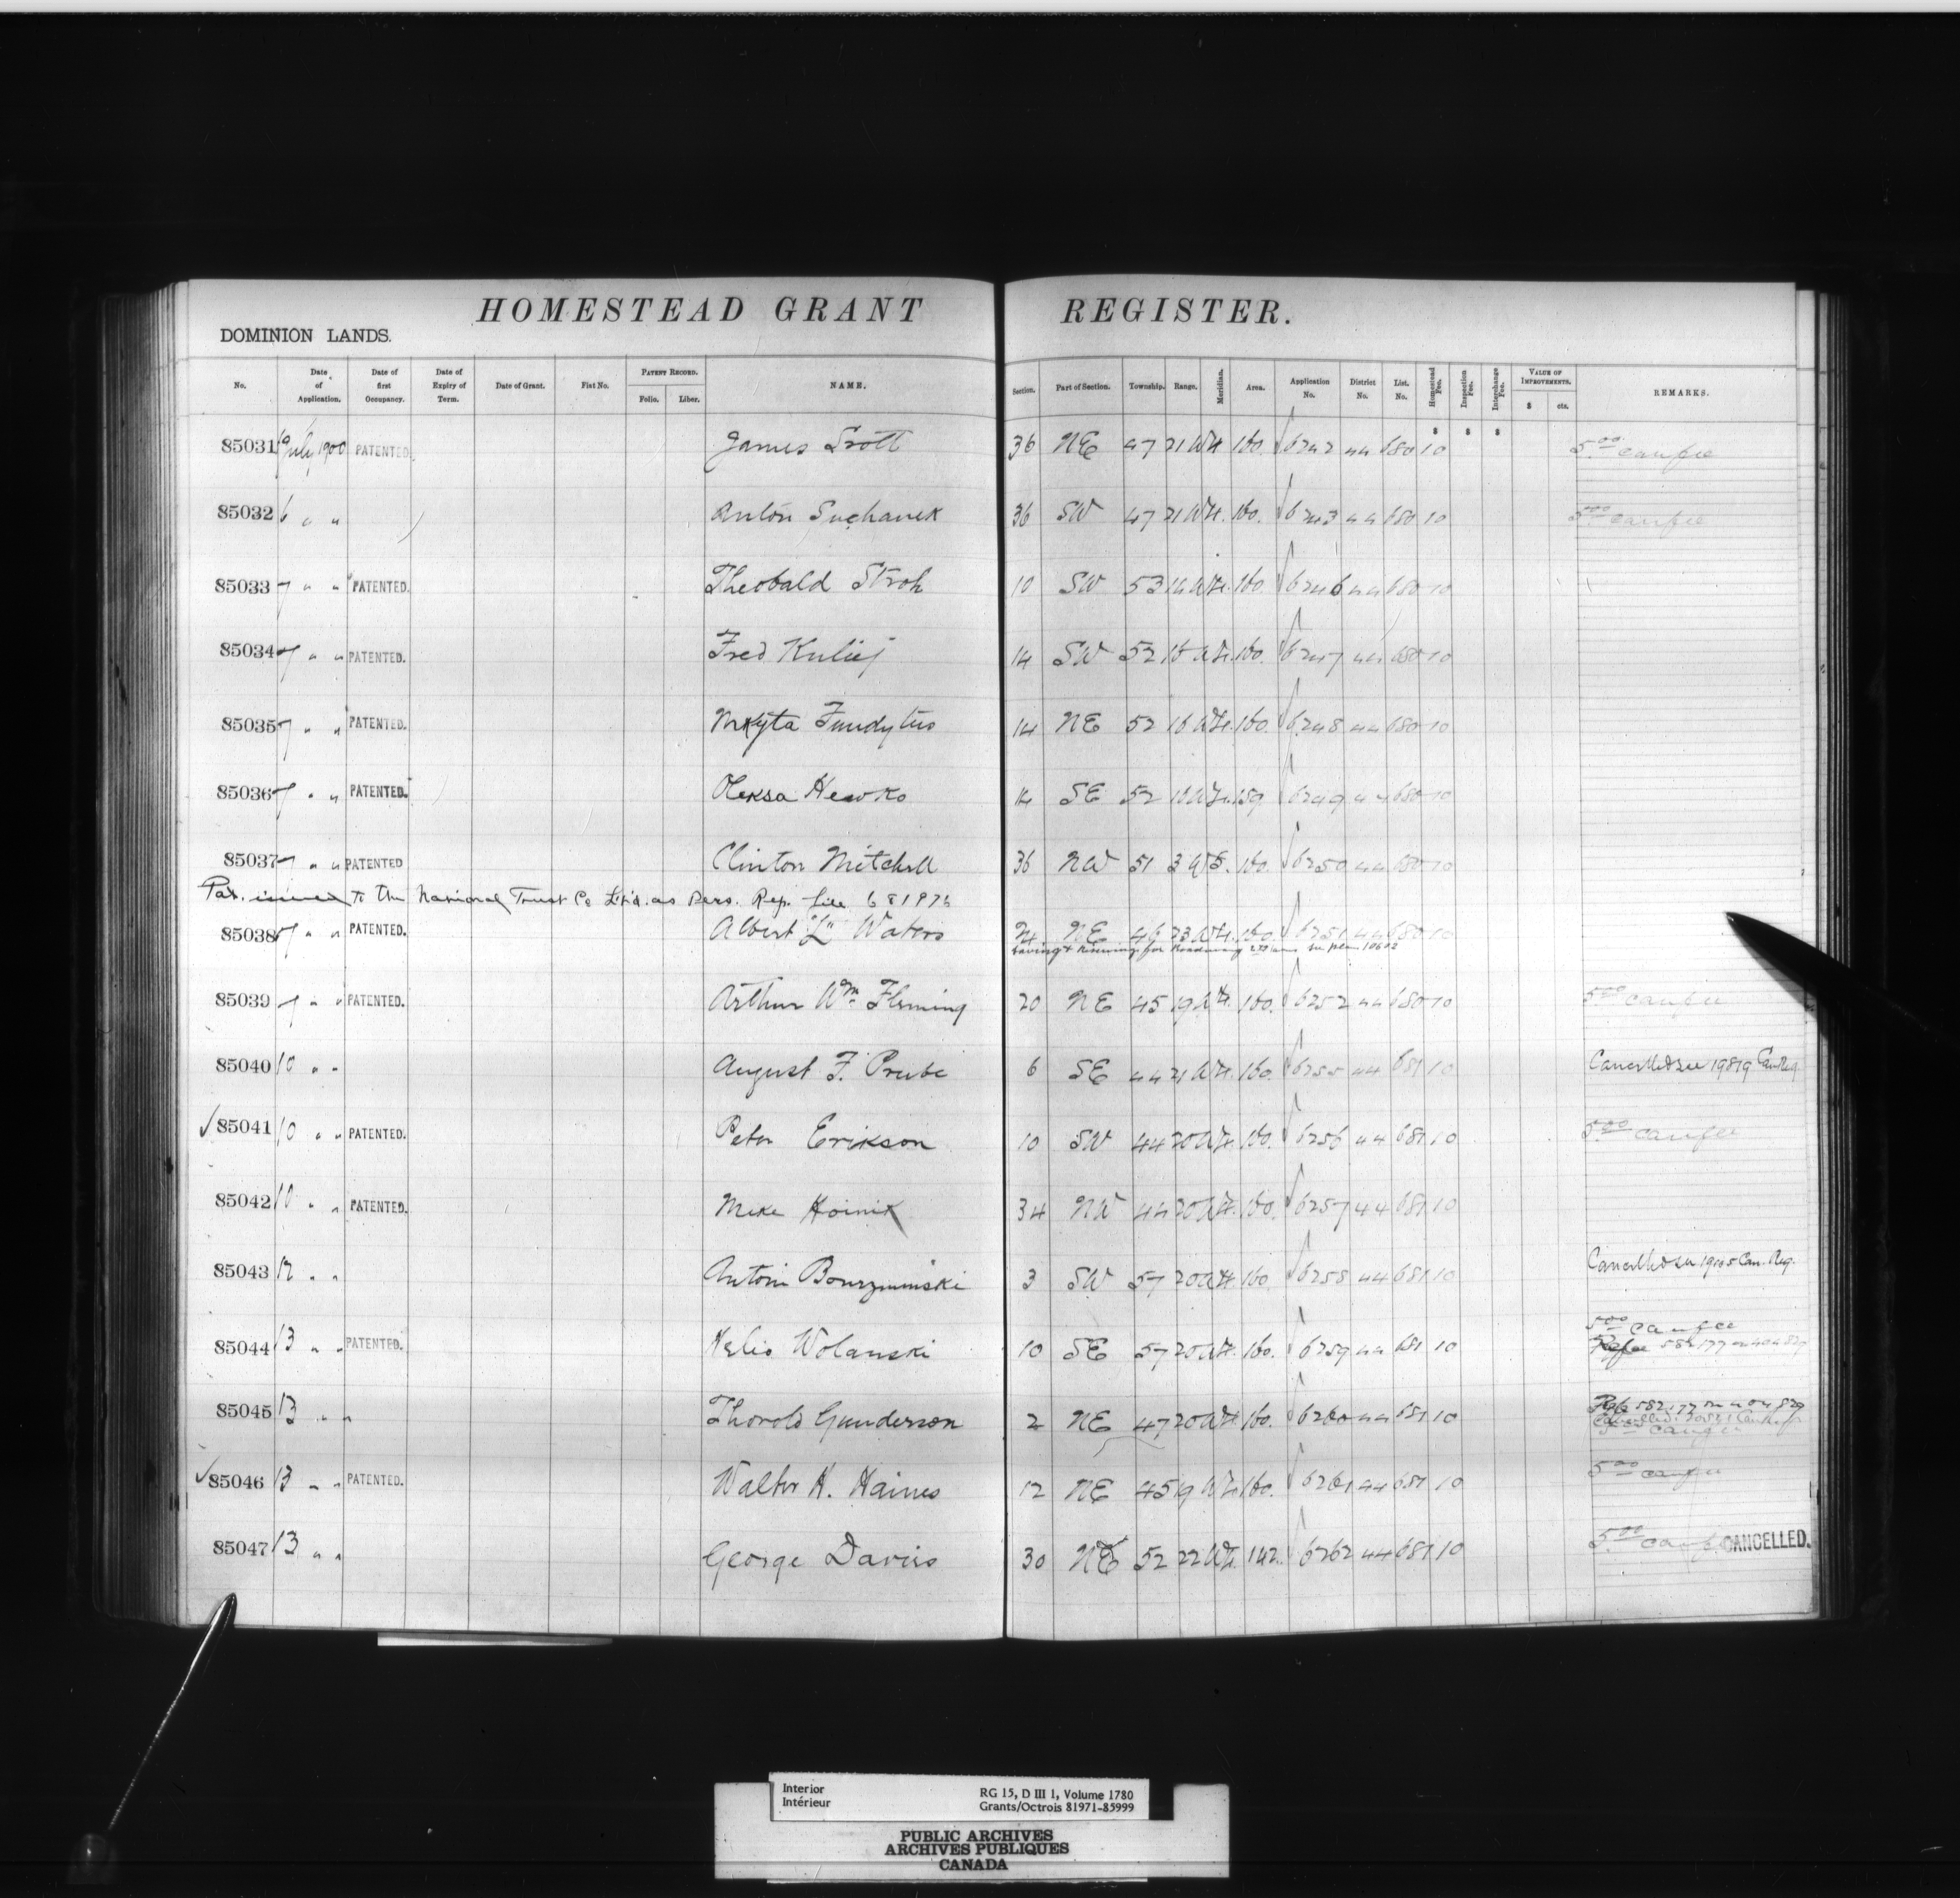 HOMESTEAD GRANT REGISTER.
DOMINION LANDS.
No. Date of Application. Date of first Occupancy. Date of Expiry of Term. Date of Grant. Fiat No. PATENT RECORD. Folio. Liber. NAME. Section. Part of Section. Township. Range. Meridian. Area. Application No. District No. List. No. Homestead Fee. Inspection Fee. Interchange Fee. VALUE OF IMPROVEMENTS. $ cts. REMARKS.
$ $ $
85031 July 1900 PATENTED. James Scott 36 NE 47 21 W4. 160. 6242 44 680 10 5.00 canfee
85032 6 " " Anton Suchanek 36 SW 47 21 W4. 160. 6243 44 680 10 5.00 canfee
85033 7 " " PATENTED. Theobald Stroh 10 SW 53 W4. 160. 6246 44 680 10
85034 7 " " PATENTED. Fred Kuliej 14 SW 52 W4. 160. 6247 44 680 10
85035 7 " " PATENTED. Mkyta Fundytus 14 NE 52 W4. 160. 6248 44 680 10
85036 7 " " PATENTED. Oleksa Hewko 14 SE 52 W4. 159. 6249 44 680 10
85037 7 " " PATENTED Clinton Mitchell 36 NW 51 3 W5. 160. 6250 44 680 10
Pat. issued to the National Trust Co Lt'd. as Pers. Rep. file 681976
85038 7 " " PATENTED. Albert "L" Waters NE 46 23 W4. 160. 6251 44 680 10
85039 7 " " PATENTED. Arthur Wm. Fleming 20 NE 45 19 W4. 160. 6252 44 680 10 5.00 canfee
85040 10 " " August F. Prube 6 SE 44 21 W4. 160. 6255 44 681 10 Cancelled see 19819 Can Reg.
✓ 85041 10 " " PATENTED. Peter Erikson 10 SW 44 20 W4. 160. 6256 44 681 10 5.00 canfee
85042 10 " " PATENTED. Mike Koinik 34 NW 44 20 W4. 160. 6257 44 681 10
85043 12 " " Antoni 3 SW 57 20 W4. 160 6258 44 681 10 Cancelled see Can. Reg.
85044 13 " " PATENTED. Wolanski 10 SE 57 20 W4. 160. 6259 44 681 10 5.00 canfee
85045 13 " " Thorold Gunderson 2 NE 47 20 W4. 160. 6260 44 681 10
✓ 85046 13 " " PATENTED. Walter H. Haines 12 NE 45 19 W4 160. 6261 44 681 10 5.00 canfee
85047 13 " " George Davies 30 NE 52 22 W4. 142. 6262 44 681 10 5.00 CANCELLED.
Interior RG 15, D III 1, Volume 1780
Intérieur Grants/Octrois 81971-85999
PUBLIC ARCHIVES
ARCHIVES PUBLIQUES
CANADA